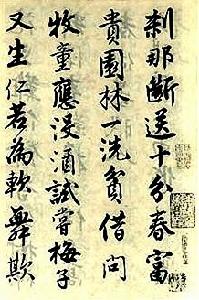 刹那断送十分春富
贵園林一洗貧借问
牧童應没酒試嘗梅子
又生仁若為軟舞欺